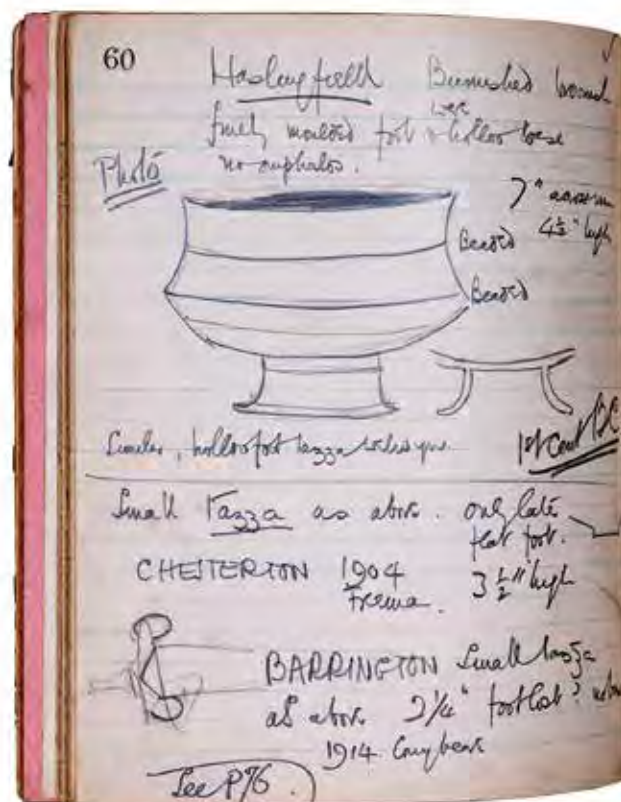 60
Haslingfield Burnished
finely moulded foot & hollow base
no omphalos.
Photo
7" across
4½" high
Beaded
Beaded
1st Cent BC
Similar, hollow foot tazza
Small Tazza as above. only late
flat foot.
CHESTERTON 1904
3½" high
BARRINGTON Small tazza
as above 2¼" foot lost?
1914 Conybeare
See P76.